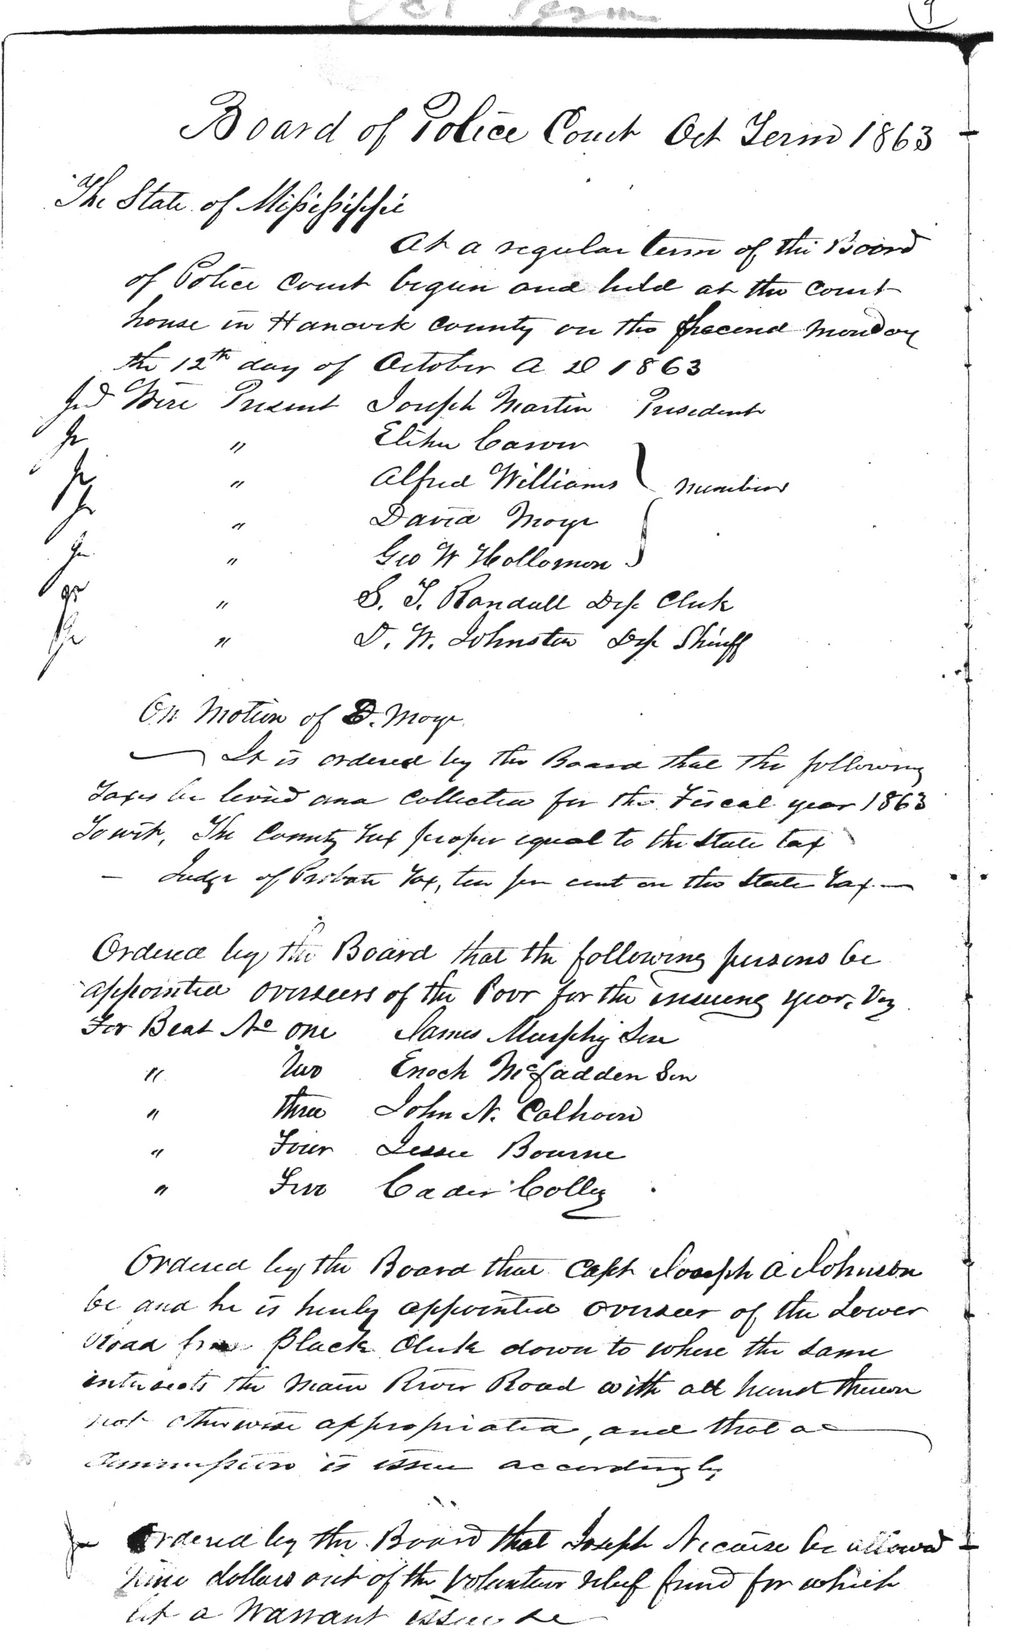 Oct Term
9
Board of Police Court Oct Term 1863
The State of Mississippi
At a regular term of the Board
of Police Court begun and held at the court
house in Hancock County on the second Monday
the 12th day of October A D 1863
Were Present Joseph Martin President
" Elihu Carver
" Alfred Williams members
" David Moye
" Geo W Hollomon
" S. T. Randall Dep Clerk
" D. W. Johnston Dep Sheriff
On Motion of D. Moye
It is ordered by the Board that the following
Taxes be levied and Collected for the Fiscal year 1863
Towit, The County Tax proper equal to the State tax
Judge of Probate Tax, ten per cent on the State Tax
Ordered by the Board that the following persons be
appointed overseers of the Poor for the ensueing year, Viz
For Beat No one James Murphy Sen
" Two Enoch McFadden Sen
" three John N. Calhoun
" Four Jessee Bourne
" Five Cader Colley
Ordered by the Board that Capt Joseph A Johnson
be and he is hereby appointed overseer of the Lower
Road from Black Creek down to where the same
intersects the main River Road with all hands thereon
not otherwise appropriated, and that a
Commission is issue accordingly
Ordered by the Board that Joseph Necaise be allowed
Nine dollars out of the Volunteer relief fund for which
let a Warrant issue &c